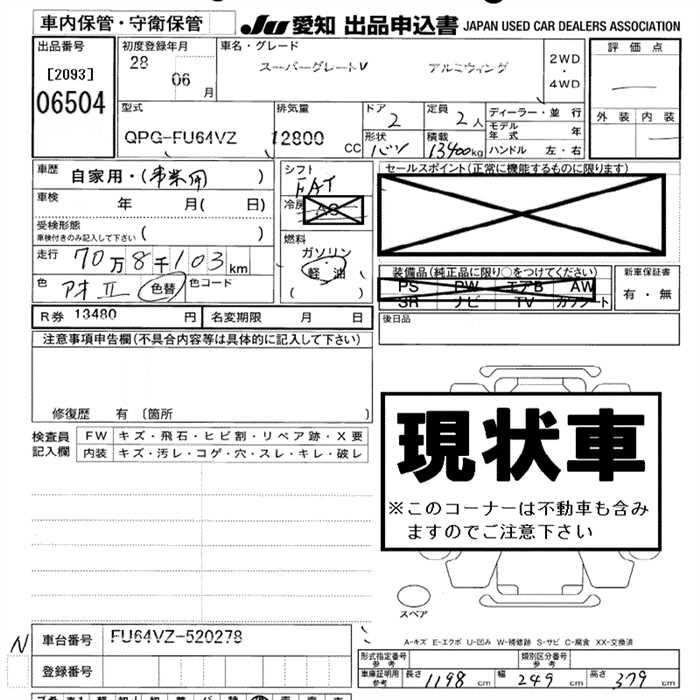 車内保管・守衛保管
JU 愛知 出品申込書 JAPAN USED CAR DEALERS ASSOCIATION
出品番号
[2093]
06504
初度登録年月
28
06 月
車名・グレード
スーパーグレートV アルミウィング
2WD
・
4WD
評価点
外装 内装
型式
QPG-FU64VZ
排気量
12800 CC
ドア
2
定員
2人
形状
バン
積載
13400kg
ディーラー・並行
モデル年式 年
ハンドル 左・右
車歴
自家用・(事業用)
車検
年 月( 日)
受検形態
車検付きのみ記入して下さい ( )
走行
70万8千103km
色
アオII 色替
色コード
シフト
FAT
冷房
AC
燃料
ガソリン
軽油
( )
セールスポイント(正常に機能するものに限ります)
装備品(純正品に限り○をつけてください)
PS PW エアB AW
SR ナビ TV カワシート
新車保証書
有・無
後日品
R券 13480 円
名変期限 月 日
注意事項申告欄(不具合内容等は具体的に記入して下さい)
修復歴 有 [箇所 ]
検査員記入欄
FW キズ・飛石・ヒビ割・リペア跡・X要
内装 キズ・汚レ・コゲ・穴・スレ・キレ・破レ
現状車
※このコーナーは不動車も含み
ますのでご注意下さい
スペア
A-キズ E-エクボ U-凹み W-補修跡 S-サビ C-腐食 XX-交換済
N
車台番号 FU64VZ-520278
登録番号
形式指定番号 参考
類別区分番号 参考
車庫証明用 参考
長さ 1198 cm
幅 249 cm
高さ 379 cm